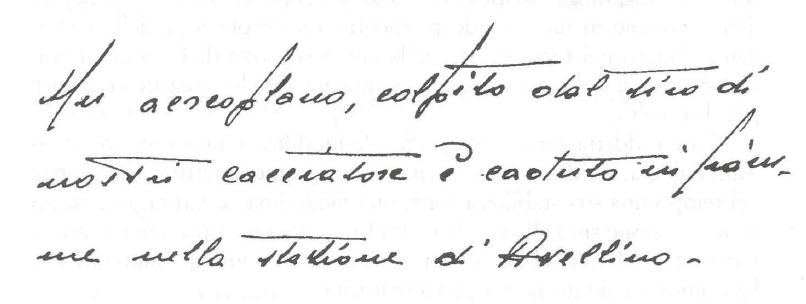 Un aereoplano, colpito dal tiro di
nostro cacciatore è caduto in fiam-
me nella stazione di Avellino.